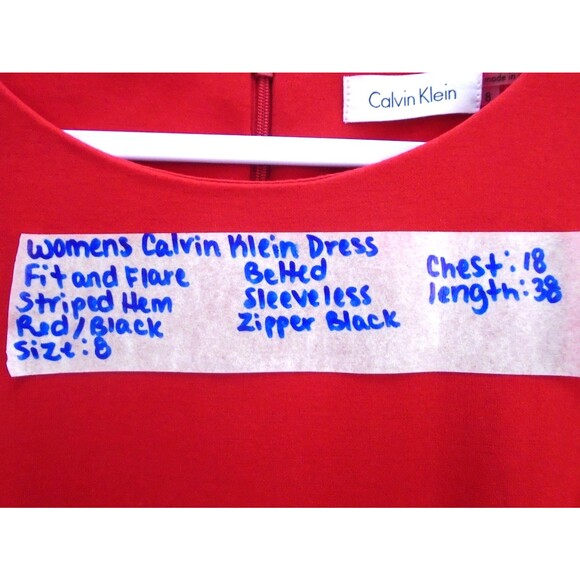 Calvin Klein
made in
8
Womens Calvin Klein Dress
Fit and Flare
Striped Hem
Red/Black
Size: 8
Belted
Sleeveless
Zipper Black
Chest: 18
length: 38